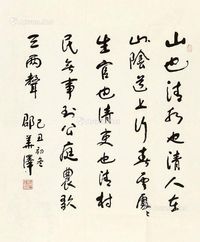 山也清水也清人在
山陰道上行春雲處處
生官也清吏也清村
民無事到公庭農歌
三兩聲
己丑初冬
邵華澤